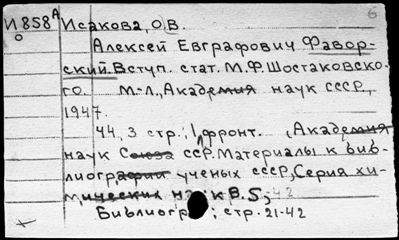 И858А Исакова, О.В.
Алексей Евграфович Фавор-
ский. Вступ. стат. М.Ф. Шостаковско-
го. М.-Л., Академия наук СССР,
1947.
44, 3 стр.; 1 фронт. (Академия
наук Союза ССР. Материалы к биб-
лиографии ученых СССР, Серия хи-
мических на к В. 5,
Библиогр ; стр. 21-42